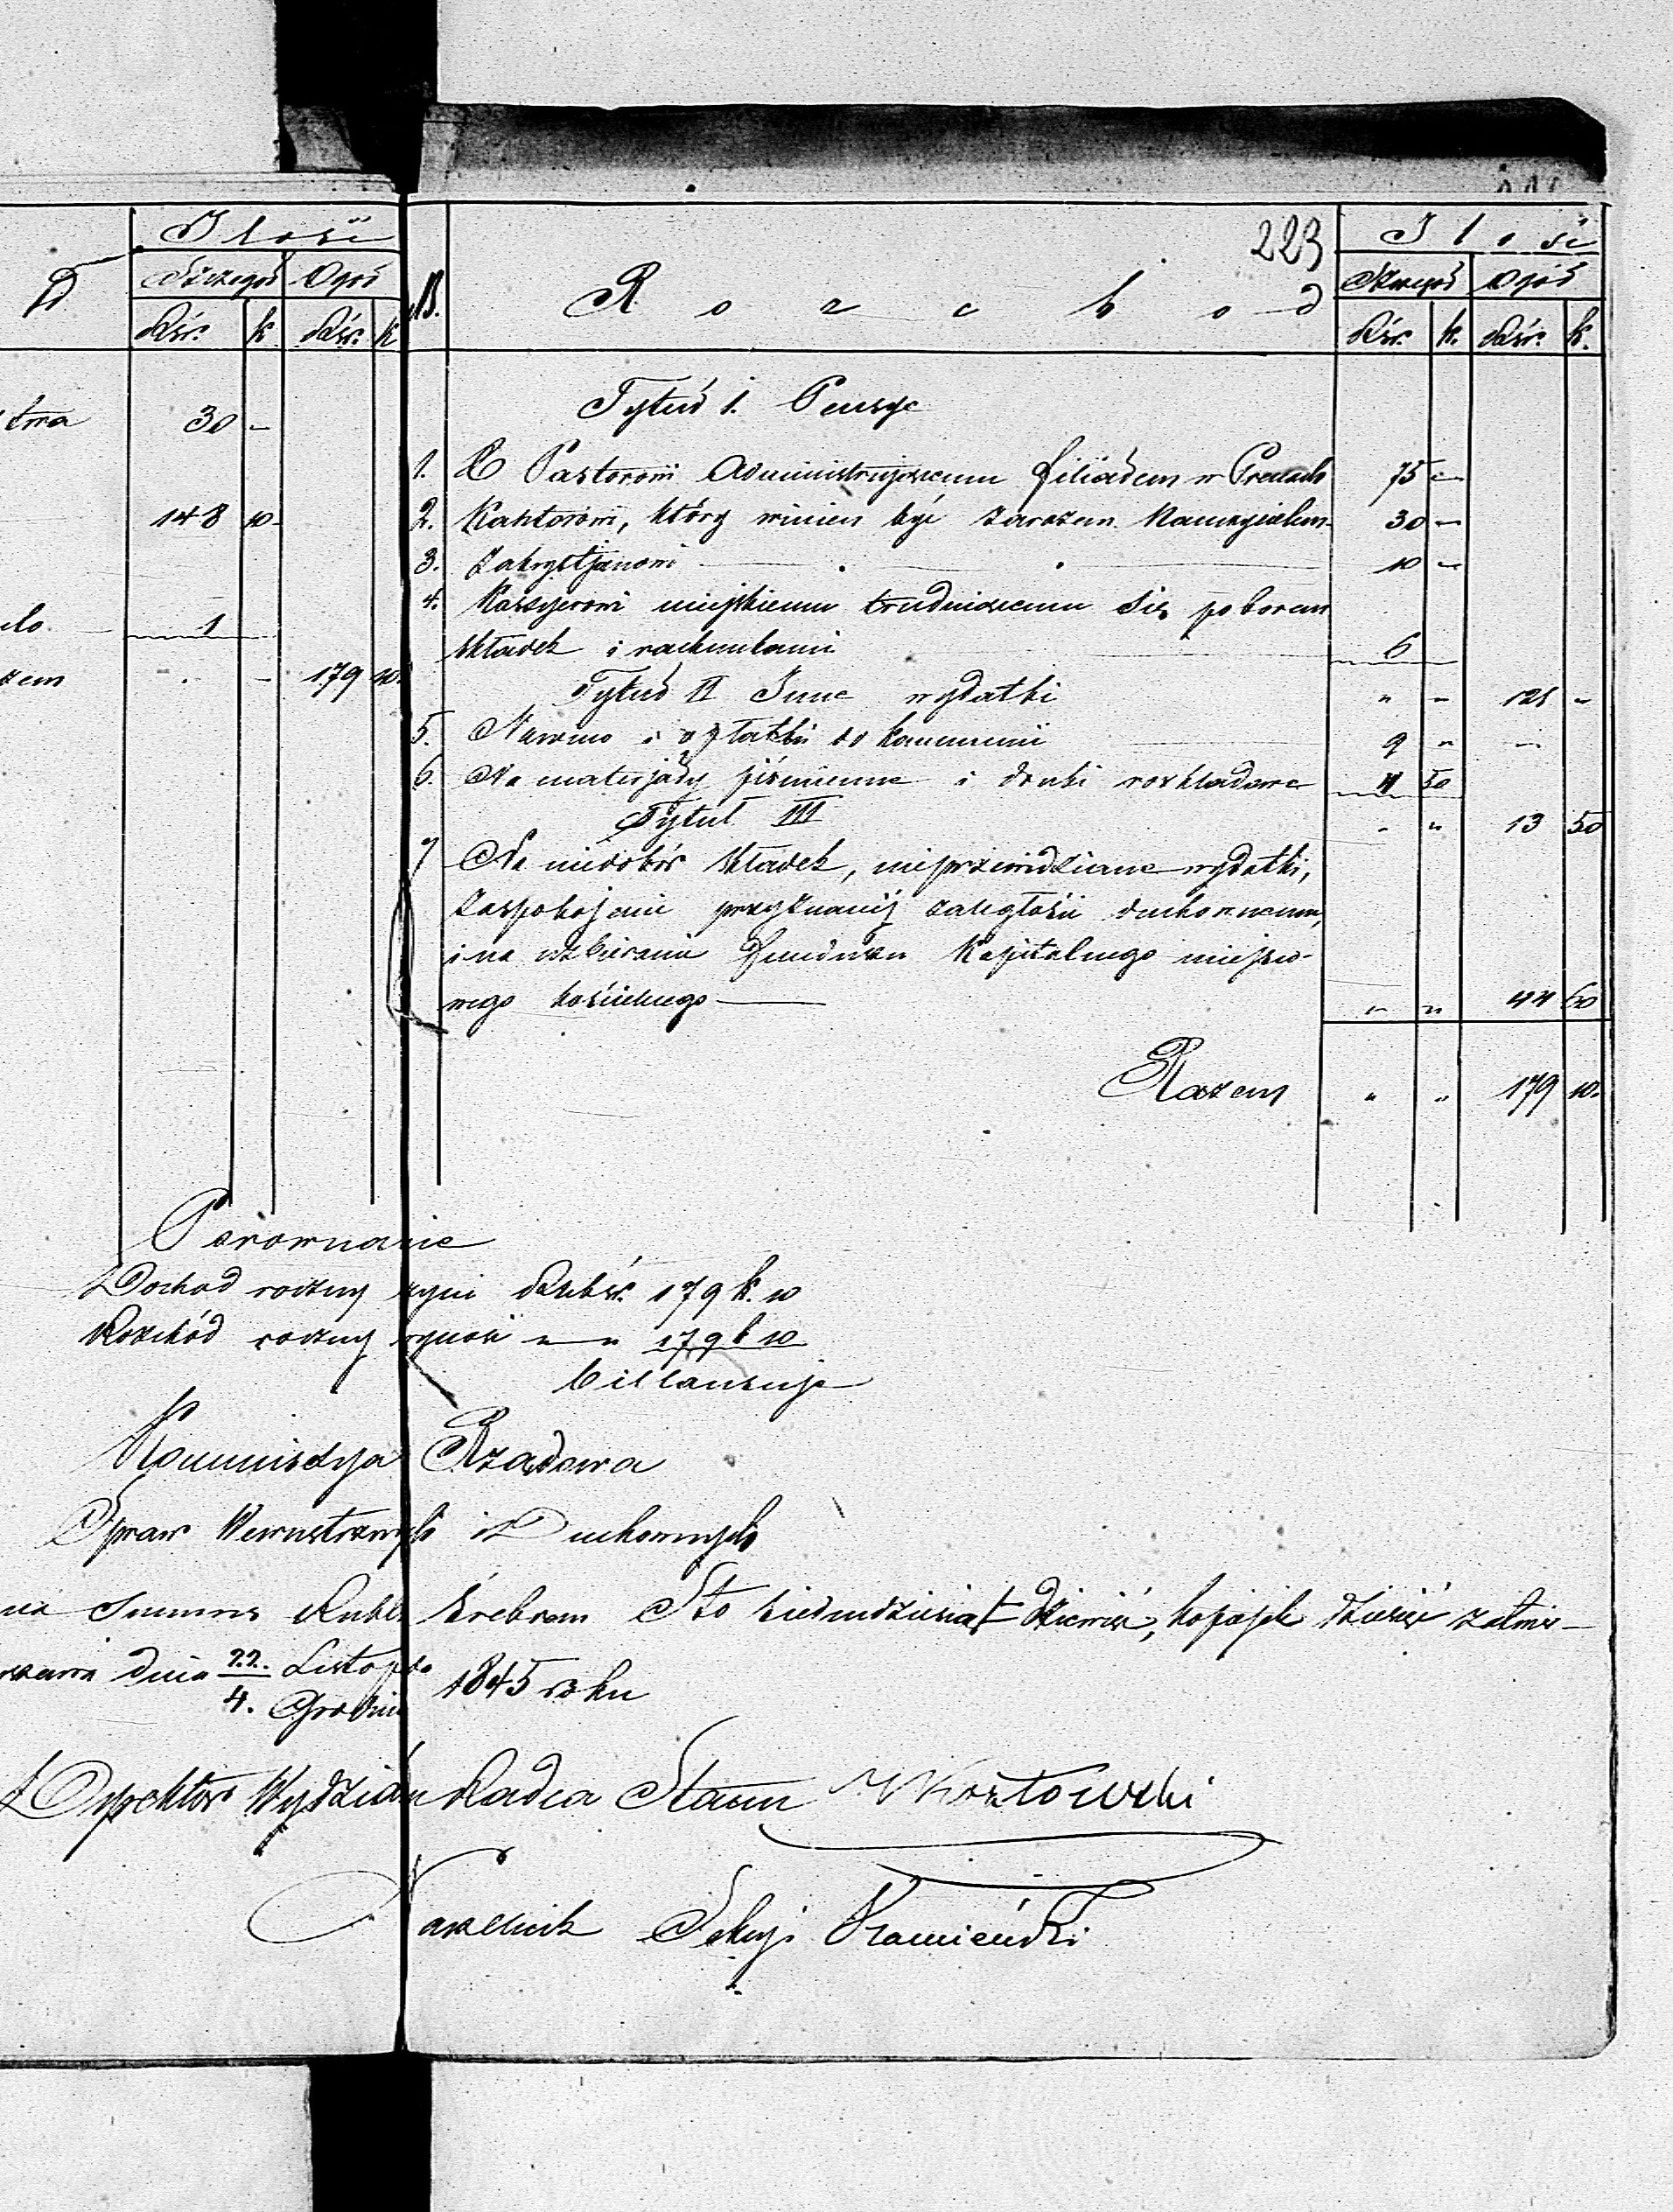 Ilość
Szczegoł Ogół
Rsr. k Rsr. k
30 -
148 10
1
179 10
223
N. Rozchod
Ilość
Szczegoł Ogół
Rsr. k. Rsr. k.
Tytuł 1. Pensye
1. Pastorowi Administrującemu filiałem w 75 -
2. Kantorowi, który winien być zarazem Nauczycielem 30 -
3. Zakrystjanowi 10 -
4. Kassyerowi miejskiemu trudniącemu się poborem
składek i rachunkami 6
Tytuł II Inne wydatki " - 121 -
5. Na wino i opłatki do kommunii 9 "
6. Na materjały piśmienne i druki rozkładowe 4 50
Tytuł III " " 13 50
7 Na niedobór składek, nieprzewidziane wydatki,
zaspokojenie przyznanéj zaległości duchownemu,
i na uzbieranie funduszu Kapitalnego miejsco-
wego kościelnego " " 44 60
Razem " " 179 10.
Porownanie
Dochod roczny czyni Rubsr. 179 k. 10
Rozchód roczny wynosi " " 179 k 10
billansuje
Kommissya Rządowa
Spraw Wewnetrznych i Duchownych
na Summę Rubli Srebrem Sto siedmdziesiąt dziewięć, kopiejek dziesięć zatwier-
dnia 22. Listopada
4. Grudnia 1845 roku
Dyrektor Wydziału Radca Stanu
Naczelnik Sekcji Kamieński